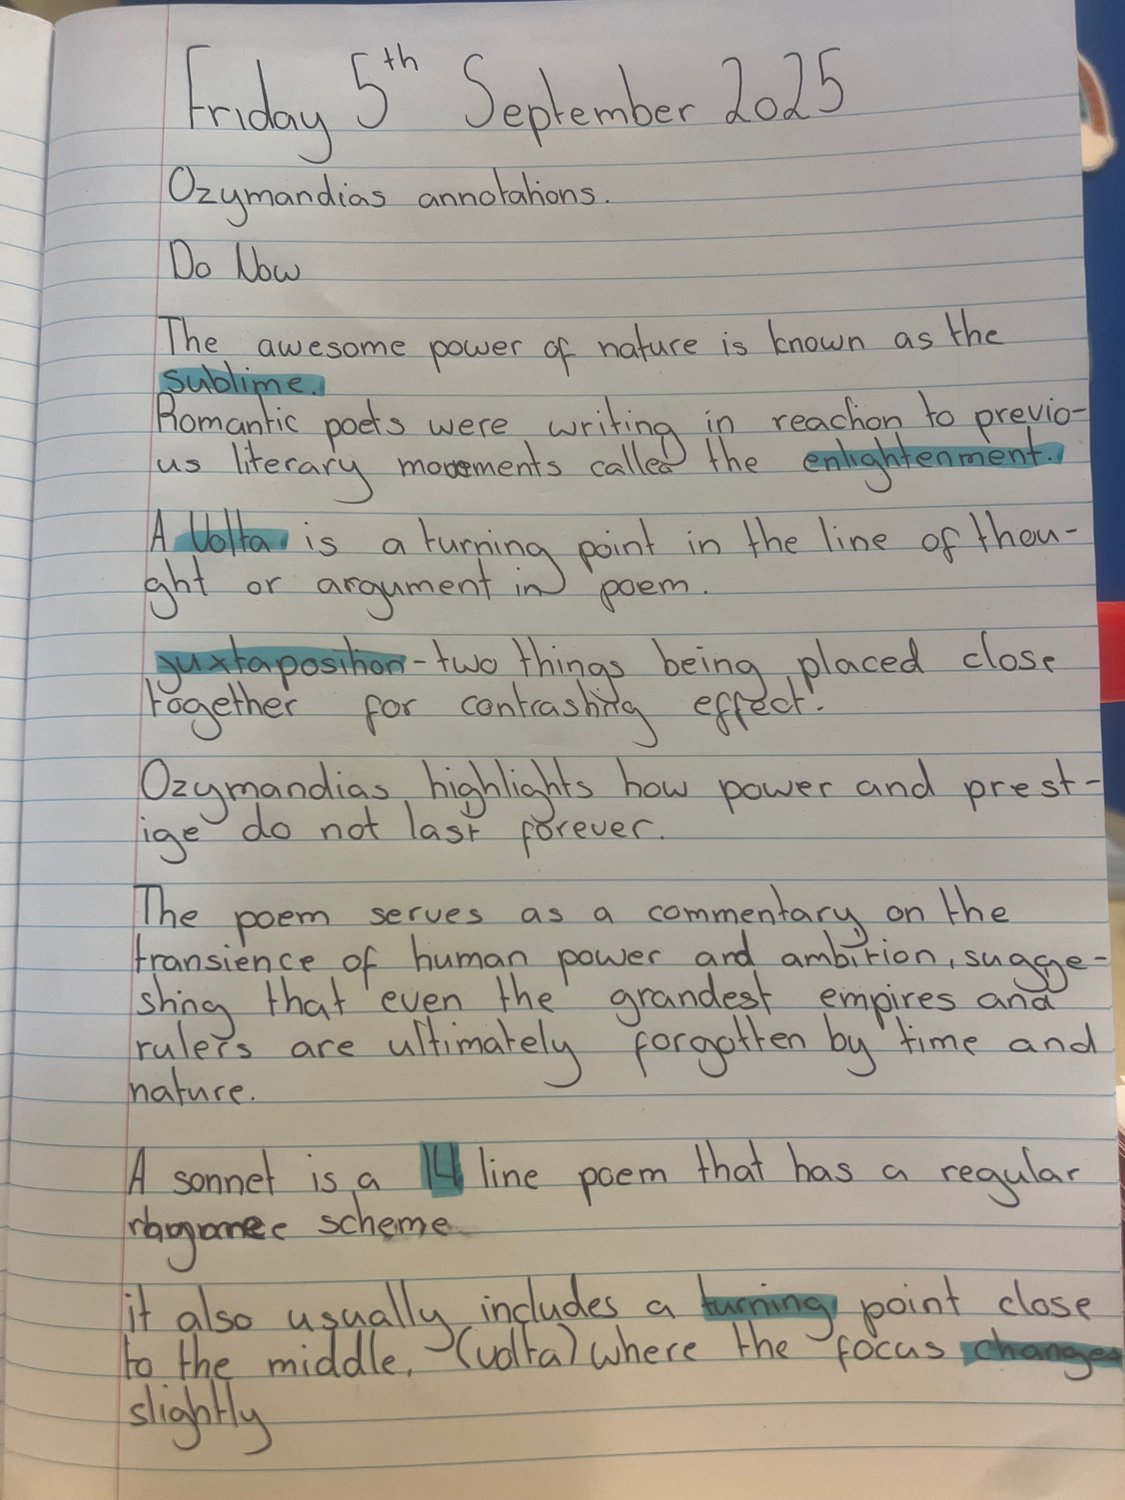 Friday 5th September 2025
Ozymandias annotations.
Do Now
The awesome power of nature is known as the
sublime.
Romantic poets were writing in reaction to previo-
us literary movements called the enlightenment.
A Volta is a turning point in the line of thou-
ght or argument in poem.
juxtaposition - two things being placed close
together for contrasting effect.
Ozymandias highlights how power and prest-
ige do not last forever.
The poem serves as a commentary on the
transience of human power and ambition, sugge-
sting that even the grandest empires and
rulers are ultimately forgotten by time and
nature.
A sonnet is a 14 line poem that has a regular
scheme
it also usually includes a turning point close
to the middle, (volta) where the focus changes
slightly